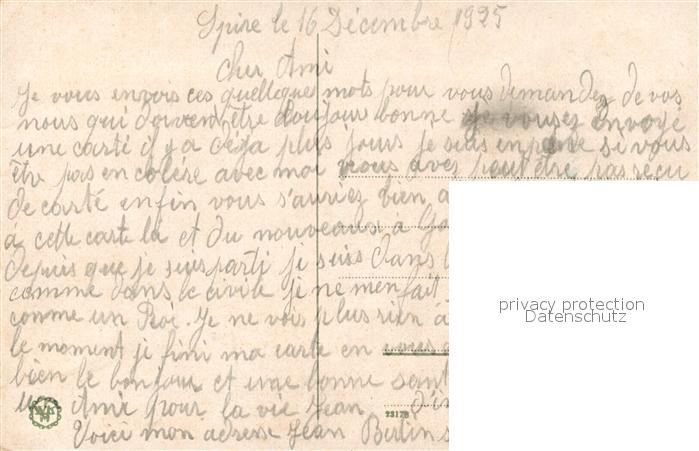 Spire le 16 Décembre 1925
cher Ami
Je vous envois ces quelleque mots pour vous demandez de vos
nous qui doivent être toujour bonne je vousez envoye
une carte il y a deja plus jours je suis en pene si vous
êtr pas en colère avec moi vous aves peut être pas reçu
de carte enfin vous s'auriez bien
à cette carte la et du nouveaux à
depuis que je suis parti je suis dans
comme dans le civile je ne men fait
comme un Roi. Je ne vois plus rien à
le moment je fini ma carte en vous
bien le bonjour et une bonne sant
Ami pour la vie Jean
Voici mon adresse Jean Bertin
23178
privacy protection
Datenschutz